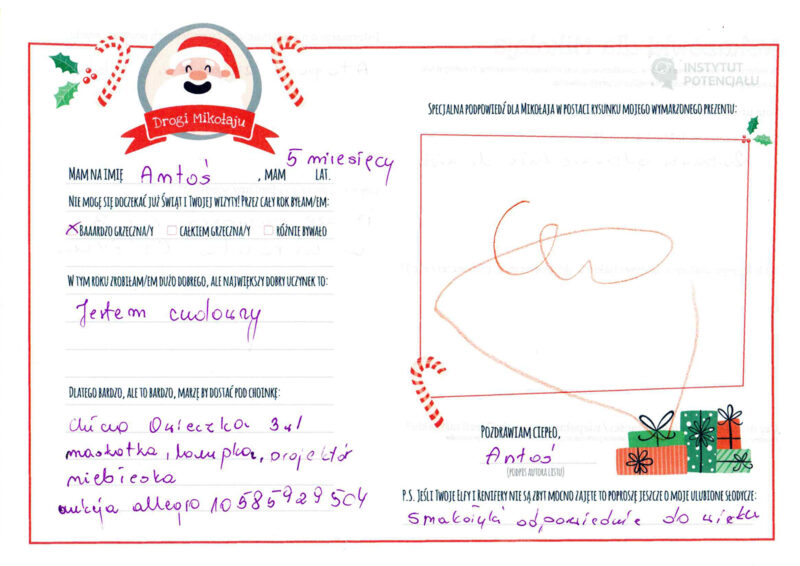 Drogi Mikołaju
INSTYTUT
POTENCJAŁU
MAM NA IMIĘ Antoś, MAM 5 miesięcy LAT.
NIE MOGĘ SIĘ DOCZEKAĆ JUŻ ŚWIĄT I TWOJEJ WIZYTY! PRZEZ CAŁY ROK BYŁAM/EM:
X BAAARDZO GRZECZNA/Y CAŁKIEM GRZECZNA/Y RÓŻNIE BYWAŁO
W TYM ROKU ZROBIŁAM/EM DUŻO DOBREGO, ALE NAJWIĘKSZY DOBRY UCZYNEK TO:
Jestem cudowny
DLATEGO BARDZO, ALE TO BARDZO, MARZĘ BY DOSTAĆ POD CHOINKĘ:
Chicco Owieczka 3w1
maskotka, lampka, projektor
niebieska
aukcja allegro 10585929504
SPECJALNA PODPOWIEDŹ DLA MIKOŁAJA W POSTACI RYSUNKU MOJEGO WYMARZONEGO PREZENTU:
POZDRAWIAM CIEPŁO,
Antoś
(PODPIS AUTORA LISTU)
P.S. JEŚLI TWOJE ELFY I RENIFERY NIE SĄ ZBYT MOCNO ZAJĘTE TO POPROSZĘ JESZCZE O MOJE ULUBIONE SŁODYCZE:
smakołyki odpowiednie do wieku